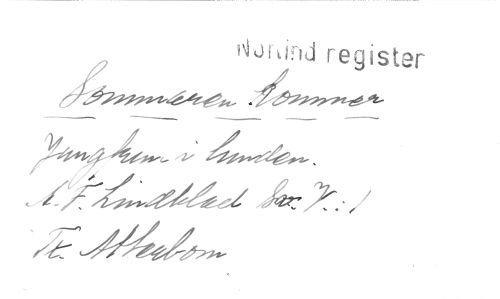 Norlind register
Sommaren kommer
Jungfrun i lunden.
A. F. Lindblad Sv. V.: 1
Tx. Atterbom